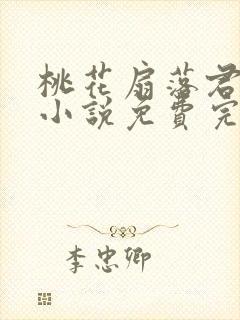 桃花扇落君
小说免费完
李忠卿